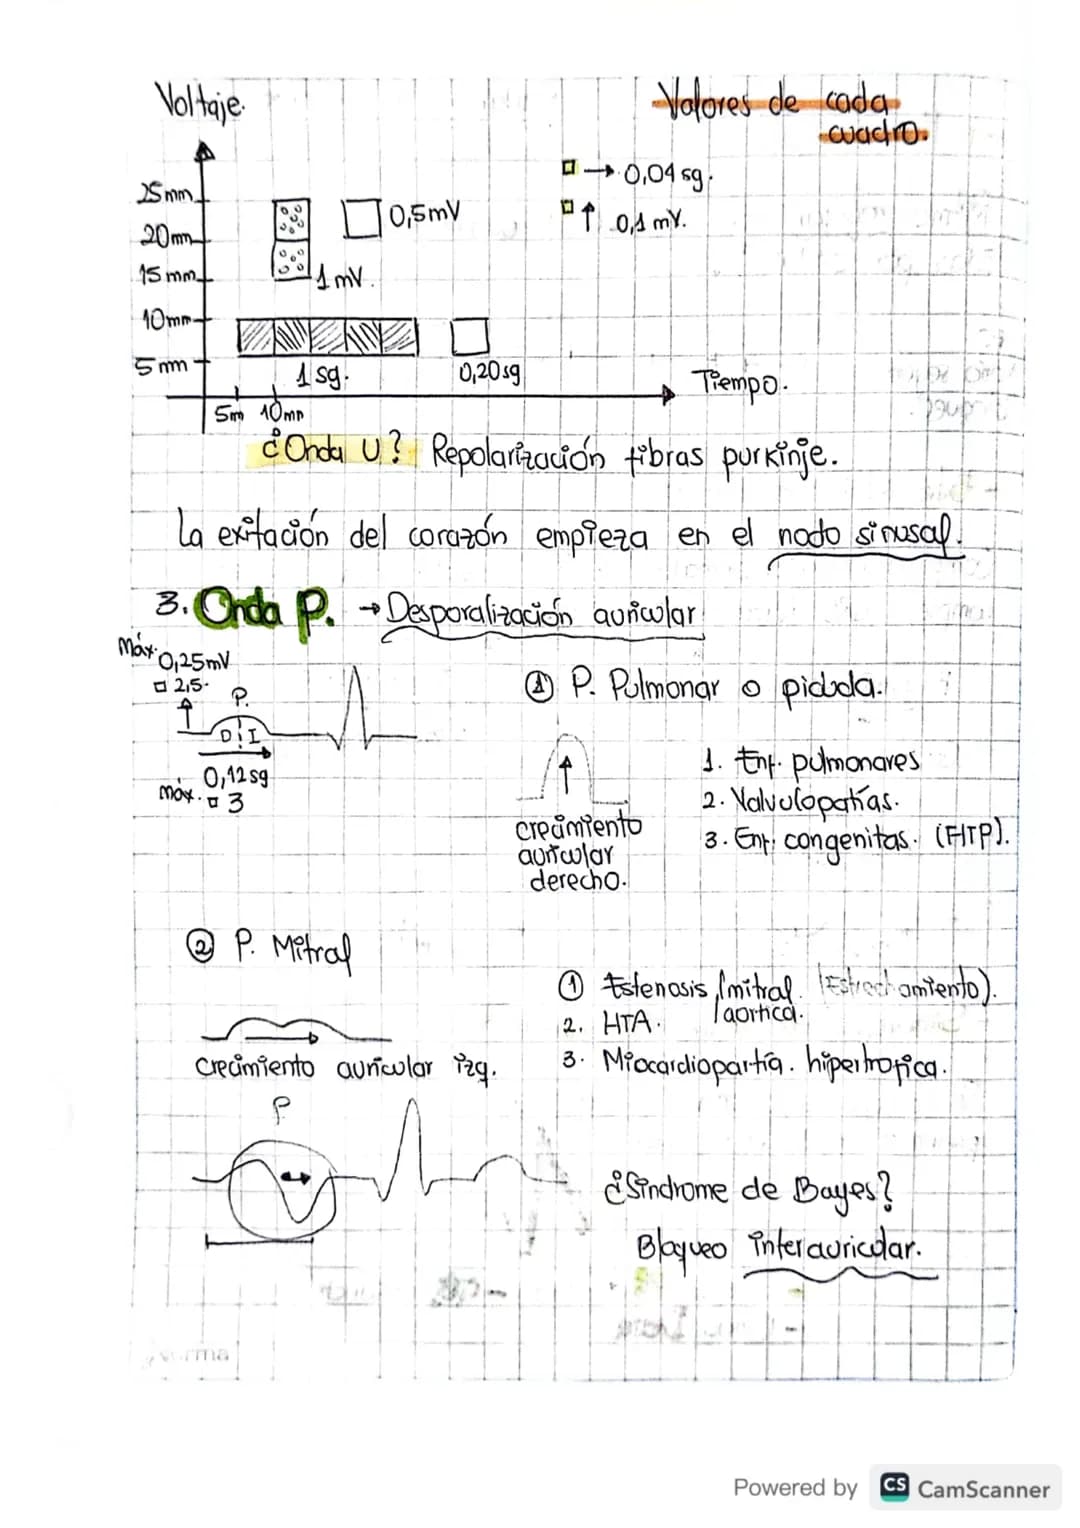 Voltaje.
Valores de cada
cuadro.
25mm
20mm
15 mm
10mm
5 mm
0,5mV
1 mV.
→ 0,04 sg.
↑ 0,1 mV.
1 sg.
0,20sg
Tiempo.
5m 10mm
¿Onda U? Repolarización fibras purkinje.
La exitación del corazón empieza en el nodo sinusal.
3. Onda P. → Desporalización auricular
Máx. 0,25mV
□ 2,5.
P.
D I
0,12sg
máx. □ 3
① P. Pulmonar o picuda.
crecimiento
auricular
derecho.
1. Enf. pulmonares
2. Valvulopatías.
3. Enf. congenitas. (FHTP).
② P. Mitral
crecimiento auricular izq.
① Estenosis mitral. (Estrechamiento).
aortica.
2. HTA.
3. Miocardiopartía. hipertrofica.
P
¿Síndrome de Bayes?
Bloqueo interauricular.
norma
Powered by CS CamScanner